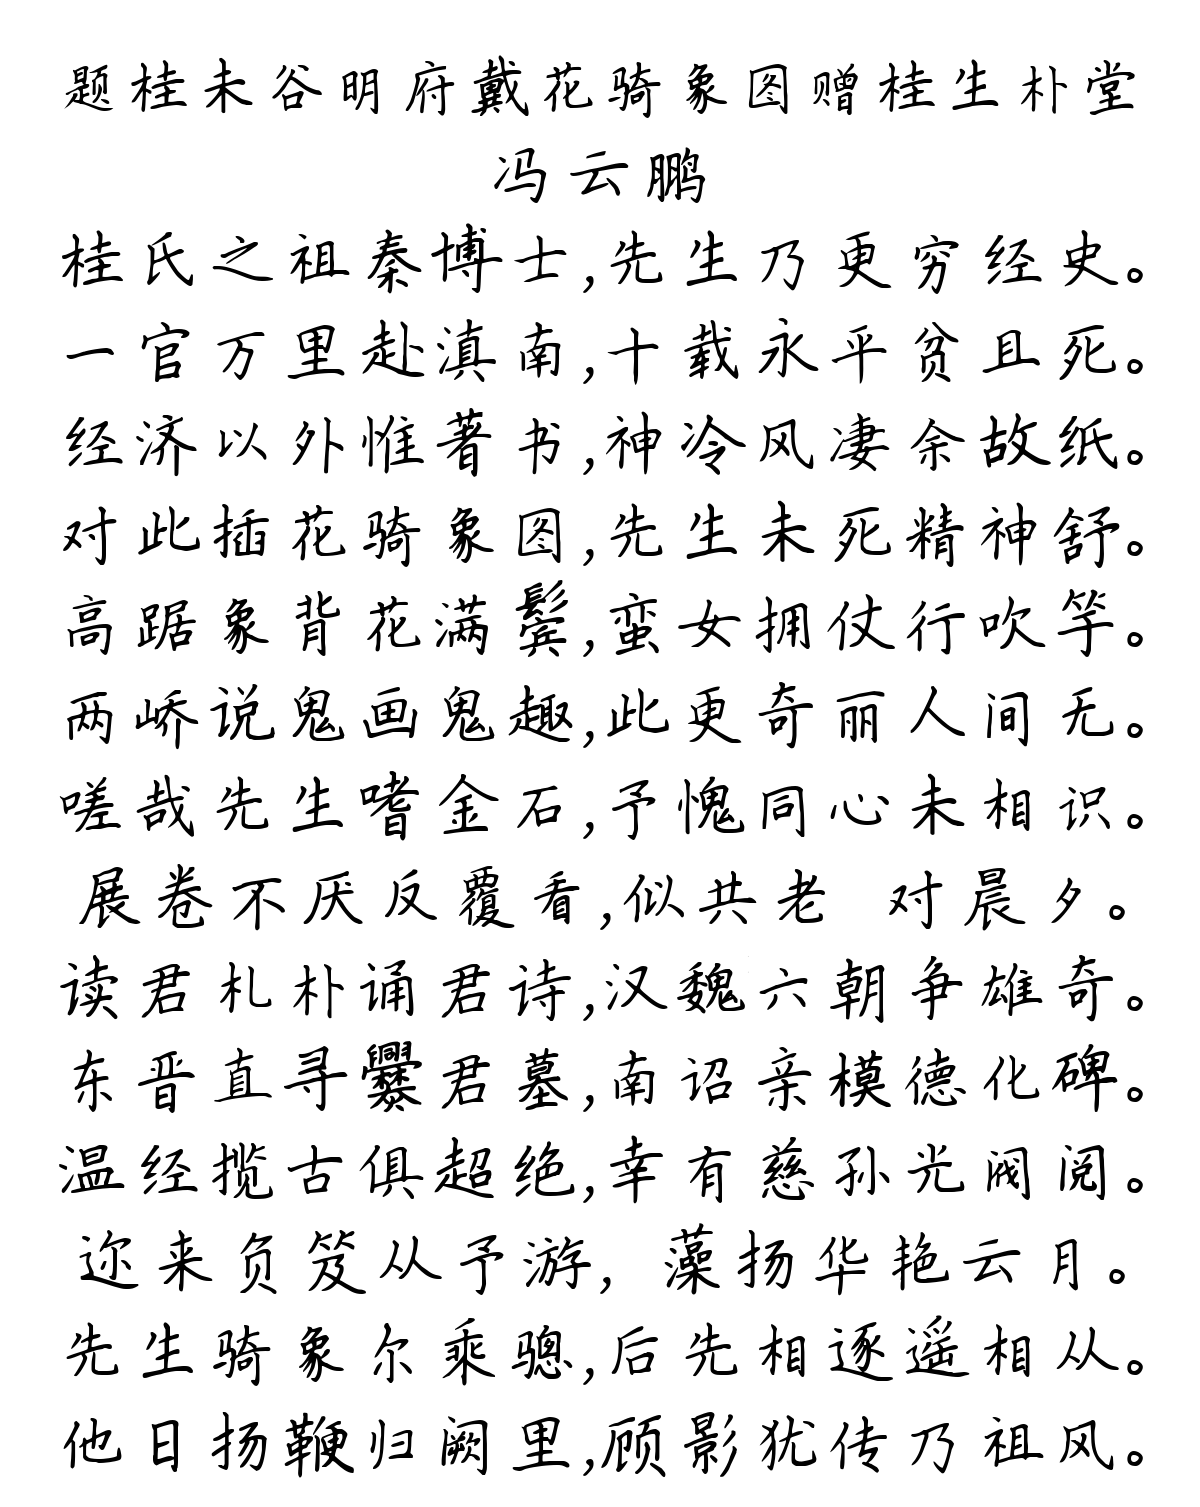 题桂未谷明府戴花骑象图赠桂生朴堂
冯云鹏
桂氏之祖秦博士,先生乃更穷经史。
一官万里赴滇南,十载永平贫且死。
经济以外惟著书,神冷风凄余故纸。
对此插花骑象图,先生未死精神舒。
高踞象背花满鬓,蛮女拥仗行吹竽。
两峤说鬼画鬼趣,此更奇丽人间无。
嗟哉先生嗜金石,予愧同心未相识。
展卷不厌反覆看,似共老 对晨夕。
读君札朴诵君诗,汉魏六朝争雄奇。
东晋直寻爨君墓,南诏亲模德化碑。
温经揽古俱超绝,幸有慈孙光阀阅。
迩来负笈从予游,藻扬华艳云月。
先生骑象尔乘骢,后先相逐遥相从。
他日扬鞭归阙里,顾影犹传乃祖风。